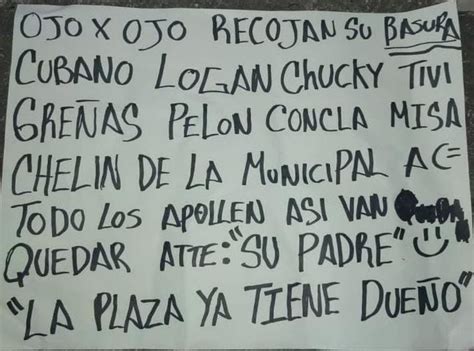 OJO X OJO RECOJAN SU BASURA
CUBANO LOGAN CHUCKY TIVI
GREÑAS PELON CONCLA MISA
CHELIN DE LA MUNICIPAL A C=
TODO LOS APOLLEN ASI VAN
QUEDAR ATTE: "SU PADRE"
"LA PLAZA YA TIENE DUEÑO"